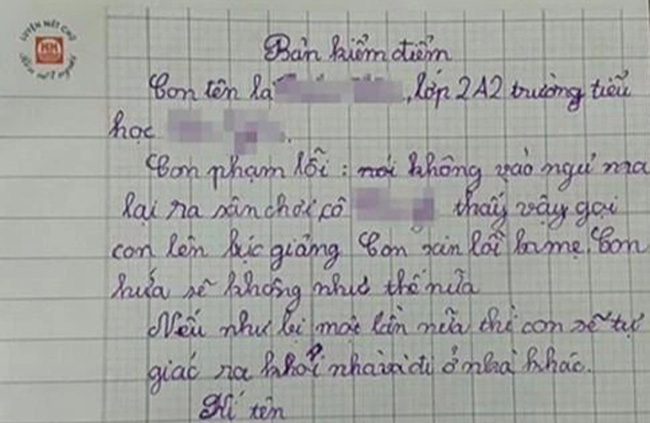 LUYỆN NÉT CHỮ
RÈN NẾT NGƯỜI
Bản kiểm điểm
Con tên là , lớp 2A2 trường tiểu
học .
Con phạm lỗi : nói không vào ngủ mà
lại ra sân chơi cô thấy vậy gọi
con lên bục giảng Con xin lỗi ba mẹ. Con
hứa sẽ không như thế nữa
Nếu như bị một lần nữa thì con sẽ tự
giác ra khỏi nhà đi ở nhà khác.
Kí tên